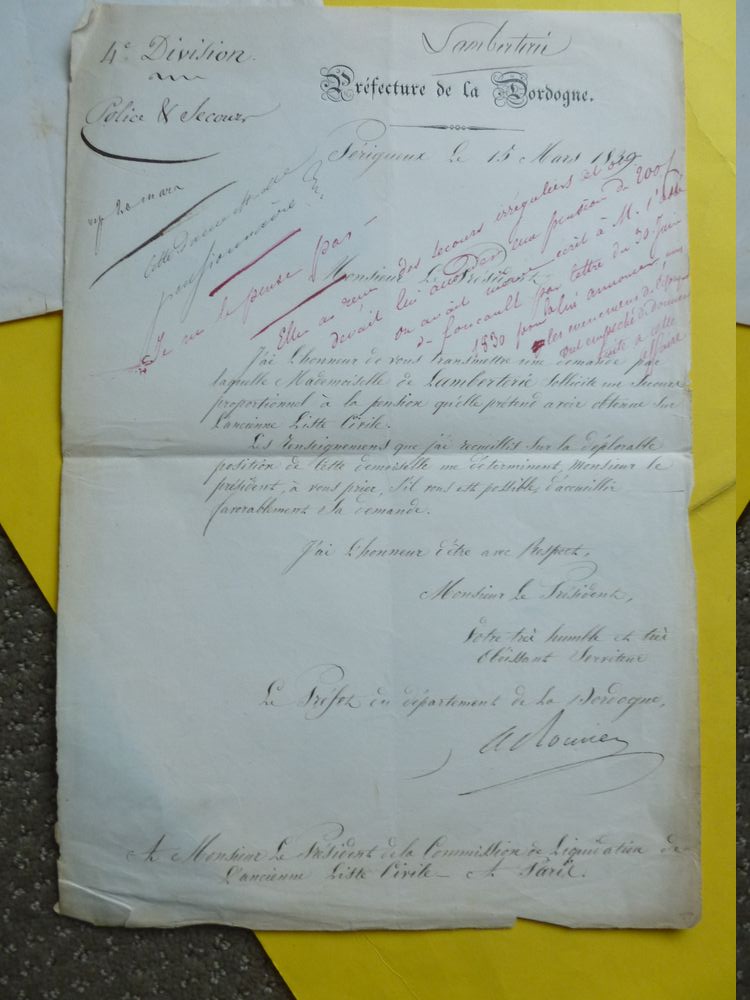 Lamberterie
4e Division.
Préfecture de la Dordogne.
Police & Secours
Périgueux Le 15 Mars 1839.
rep 20 mars
Cette Dame est-elle
pensionnaire
Je ne le pense pas —
Elle a reçu des secours irréguliers et on
devait lui accorder une pension de 200f
on avait écrit à M. l'abbé
de foucault par lettre du 30 Juin
1830 pour la lui annoncer, mais
les evenemens de l'époque
ont empeché de donner
suite à cette
affaire
Monsieur Le Président,
J'ai L'honneur de vous transmettre une demande par
laquelle Mademoiselle de Lamberterie sollicite un Secours
proportionnel à la pension qu'elle prétend avoir obtenue sur
L'ancienne Liste Civile.
Les Renseignemens que j'ai recueillis sur la déplorable
position de Cette demoiselle me déterminent, Monsieur le
président, à vous prier, s'il vous est possible, d'accueillir
favorablement sa demande.
J'ai L'honneur d'être avec Respect,
Monsieur Le Président,
Votre très humble et très
Obéissant Serviteur
Le Préfet du département de la Dordogne,
A Monsieur Le Président de la Commission de Liquidation de
L'ancienne Liste Civile — A Paris.